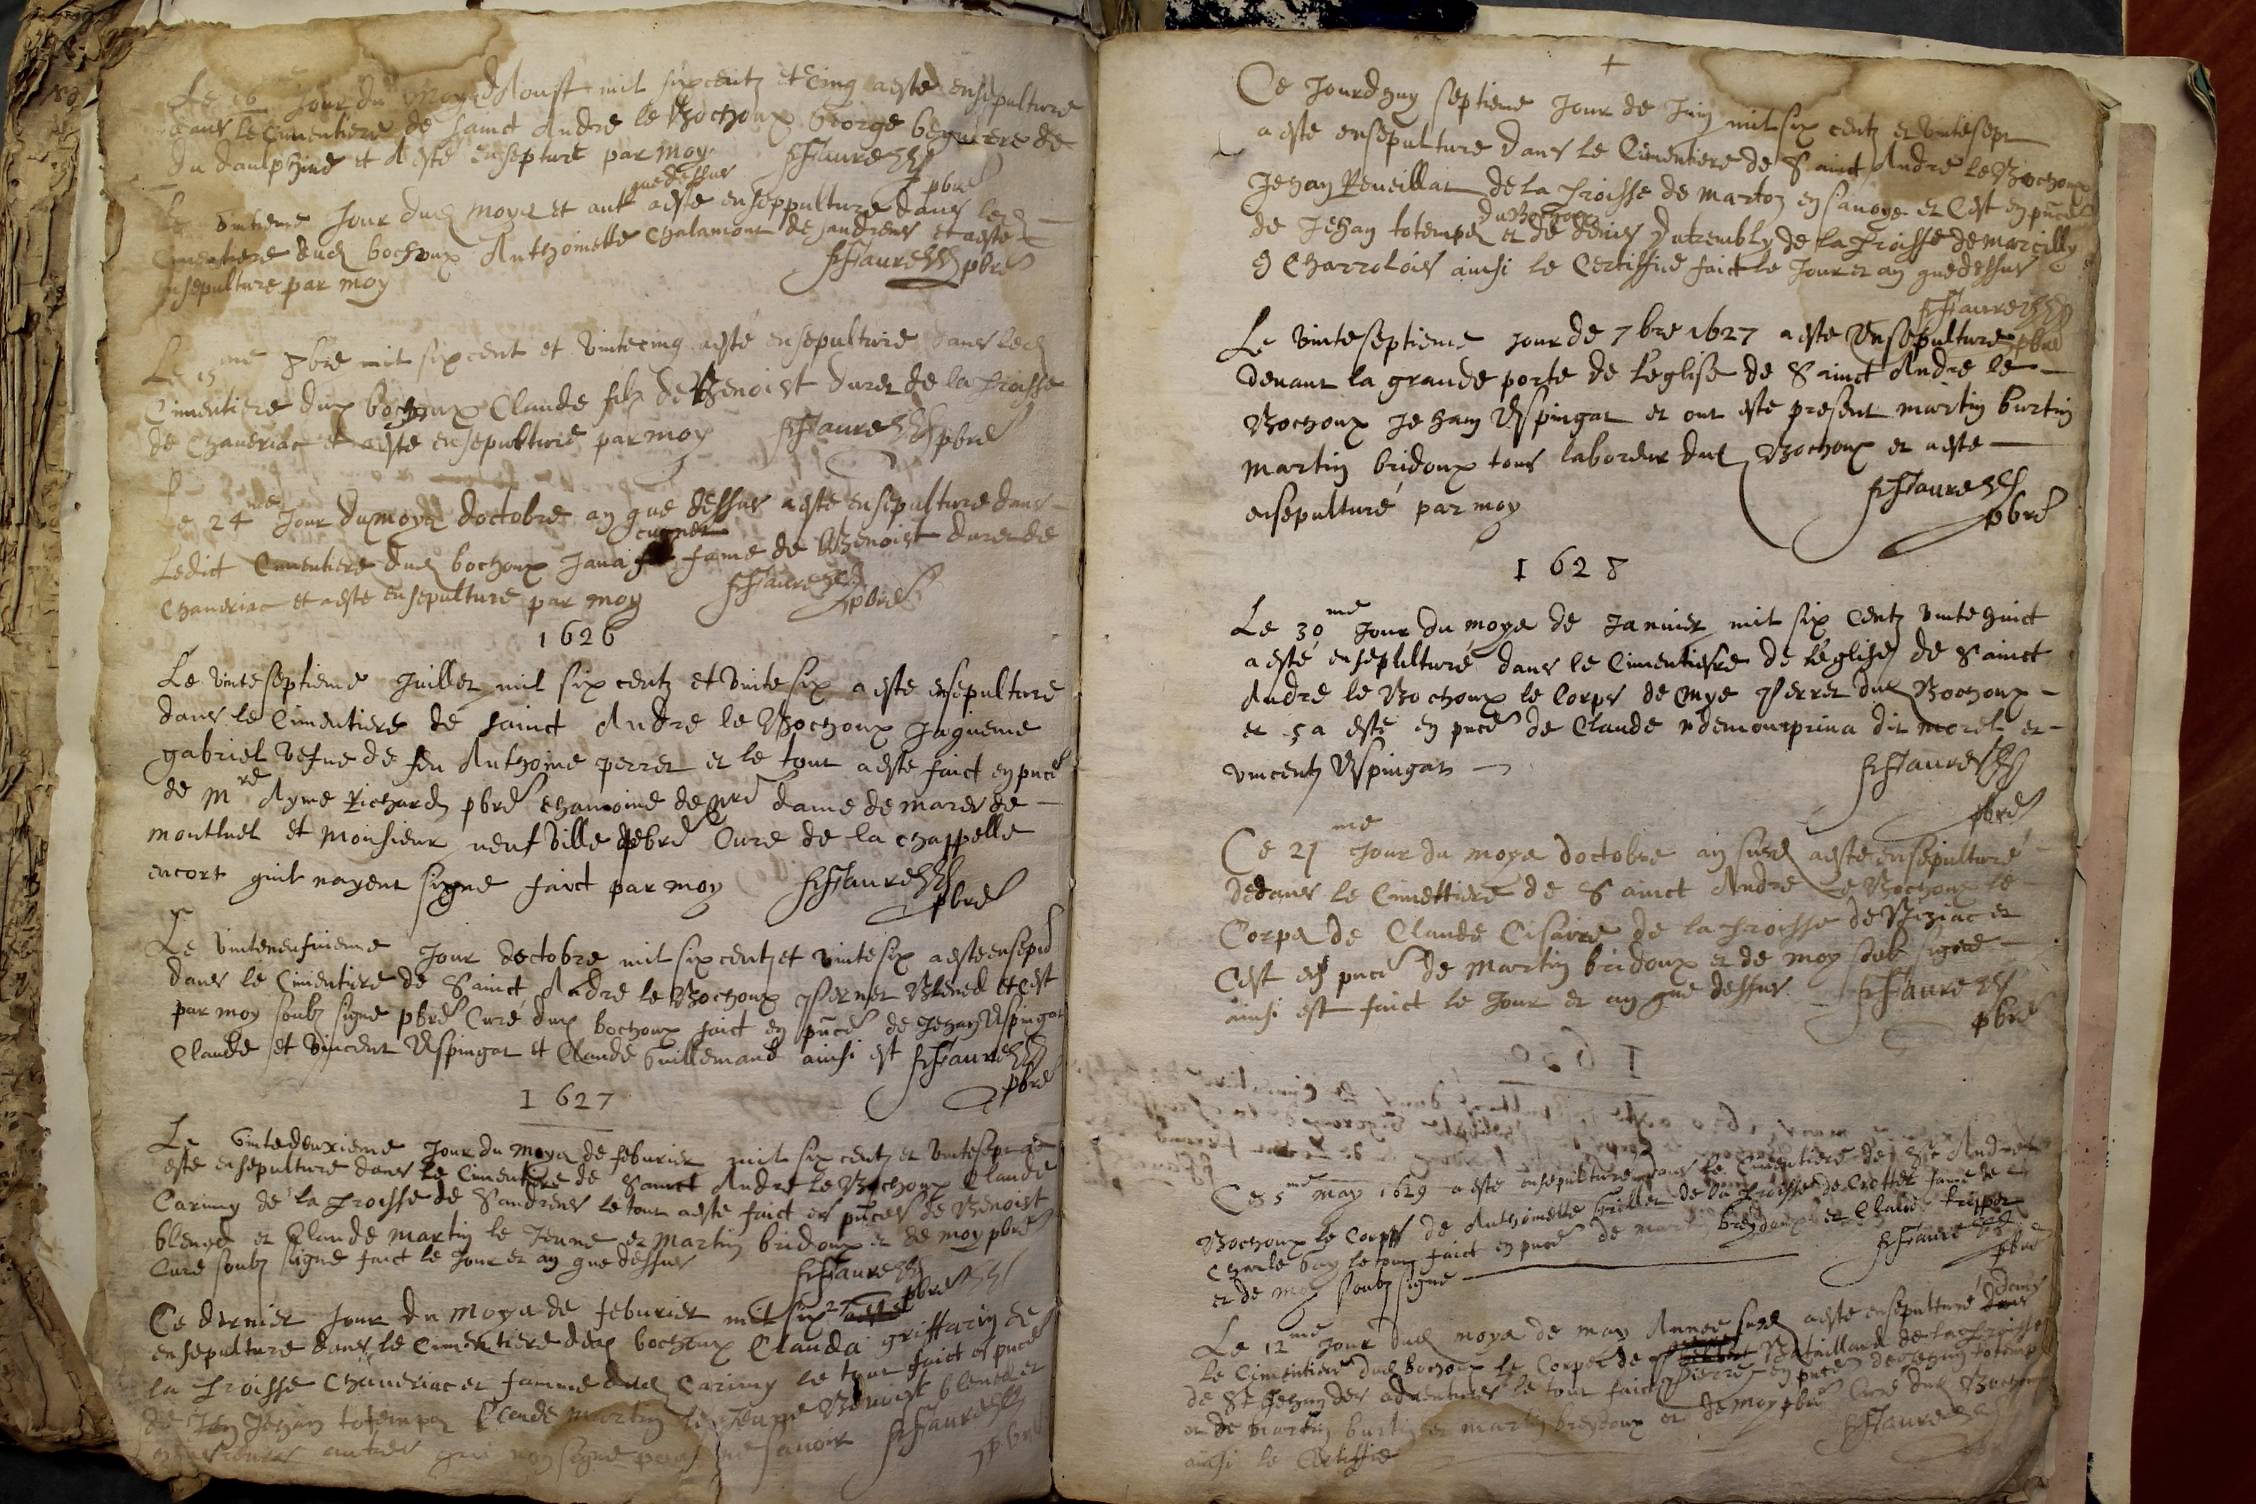 Le 16 jour du moys d'Aoust mil six centz et cinq a este ensepulture
dans le Cimentiere de sainct Andre le Bochoux George
du daulphine et A este ensepture par moy F Faure
pbre
que dessus
Le vintieme Jour dud moys et ant a este enseppulture dans led
Cimentiere dud bochoux Anthoinette Chalamont de sandrens et a este
ensepulture par moy F Faure pbre
Le 15me 7bre mil six cent et vintecinq a esté ensepulture dans led
Cimentiere dux bochoux Claude filz de Benoist Duret de la proisse
de Chaneriac et a este ensepulture par moy F Faure pbre
Le 24me Jour du moys doctobre an que dessus a este ensepulture dans
Ledict Cimentiere dud bochoux Jana fame de Benoist duret de
Chaneriac et a este ensepulture par moy F Faure pbre
1626
Le vinteseptieme Juillet mil six centz et vinte six a este ensepulture
dans le Cimentiere de sainct Andre le Bochoux Jaqueme
gabriel vefue de feu Anthoine perret et le tout a este faict en pnce
de Mre Ayme Richard pbre chanoine de nre dame de mares de
montluel et Monsieur neufville pbre Cure de la chappelle
encort quil nayent signe faict par moy F Faure
pbre
Le vinteneufvieme Jour doctobre mil six centz et vinte six a este ensepu
dans le Cimentiere de Sainct Andre le Bochoux Pernet Blened et cest
par moy soubz signe pbre Curé dux bochoux faict en pnce de Jehan Espingat
Claude et vincent Espingat et Claude Guillemand ainsi est F Faure
pbre
1627
Le vintedeuxieme Jour du moys de feburier mil six centz et vintesept a
este ensepulture dans le Cimentiere de Sainct Andre le Bochoux Claude
Carimy de la proisse de Sandrens le tout a este faict en pnces de Benoist
blened et Claude martin le Jeune et Martin bridoux et de moy pbre
Cure soubz signe faict le Jour et an que dessus F Faure
pbre
Ce dernier Jour du moys de feburier mil six 27 a este
ensepulture dans le Cimentiere dud bochoux Clauda griffarin de
la proisse Chaneriac et famme dud Carimy le tout faict en pnce
de Jehan totempa Claude martin le Jeune Benoist blened et
autres qui non signe pour ne savoir F Faure
pbre
Ce Jourdhuy septieme Jour de Juin mil six centz et vintesept
a este ensepulture dans le Cimentiere de Sainct Andre le Bochoux
Jehan Reveillat de la proisse de marton en savoye et Cest en pnce
du Bochoux
de Jehan totempa et de denis Dutrembly de la proisse de marcilly
en Charrolois ainsi le Certiffie faict le Jour et an que dessus
F Faure
pbre
Le vinteseptieme jour de 7bre 1627 a este ensepulture
devant la grande porte de leglise de Sainct Andre le
Bochoux Jehan Espingat et ont este present martin burtin
martin bridoux tous laboreur dud Bochoux et a este
ensepulturé par moy F Faure
pbre
1628
Le 30me Jour du moys de Janvier mil six centz vintehuict
a esté ensepulturé dans le Cimentiere de léglise de Sainct
Andre le Bochoux le Corps de Perret dud Bochoux
et ça esté en pnce de Claude demontprina dit morel et
vincentz Espingat F Faure
pbre
Ce 21me Jour du moys doctobre an susd a este ensepulturé
dedans le Cimettiere de Sainct Andre Le Bochoux le
Corps de Claude Cisaire de la proisse de Viziac et
Cest en pnce de Martin bridoux et de moy soub signe
ainsi est faict le Jour et an que dessus F Faure
pbre
Ce 5me may 1629 a este ensepulture dans le Cimentiere de St Andre
Bochoux le Corps de Anthoinette brillet de la proisse de Crottet fame de
Charle bay le tout faict en pnce de martin breydoux et Claude tripper
et de moy soubz signe F Faure
pbre
Le 12me Jour dud moys de may Annee susd a este ensepulturé dans
le Cimentiere dud bochoux le Corps de Bataillard de la proisse
Pierre
de St Jehan des adventures le tout faict en pnce de Jehan totempa
et de martin burtin et martin breydoux et de moy pbre Curé dud Bochoux
ainsi le Certiffie F Faure